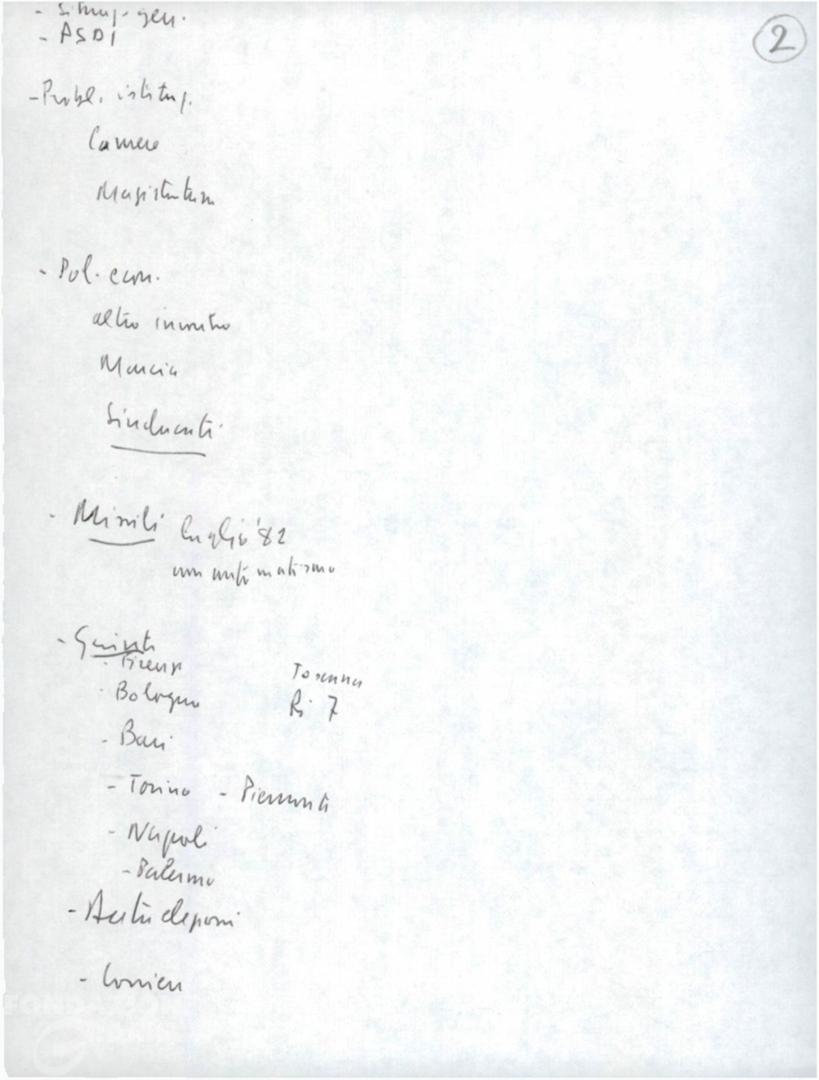 - Situaz. gen.
2
- ASDI
- Probl. istituz.
Camere
Magistratura
- Pol. econ.
altro incontro
Marcia
Sindacati
- Missili luglio '82
non automatismo
- Giunte
- Firenze Toscana
- Bologna Ri 7
- Bari
- Torino - Piemonte
- Napoli
- Palermo
-
- Corriere